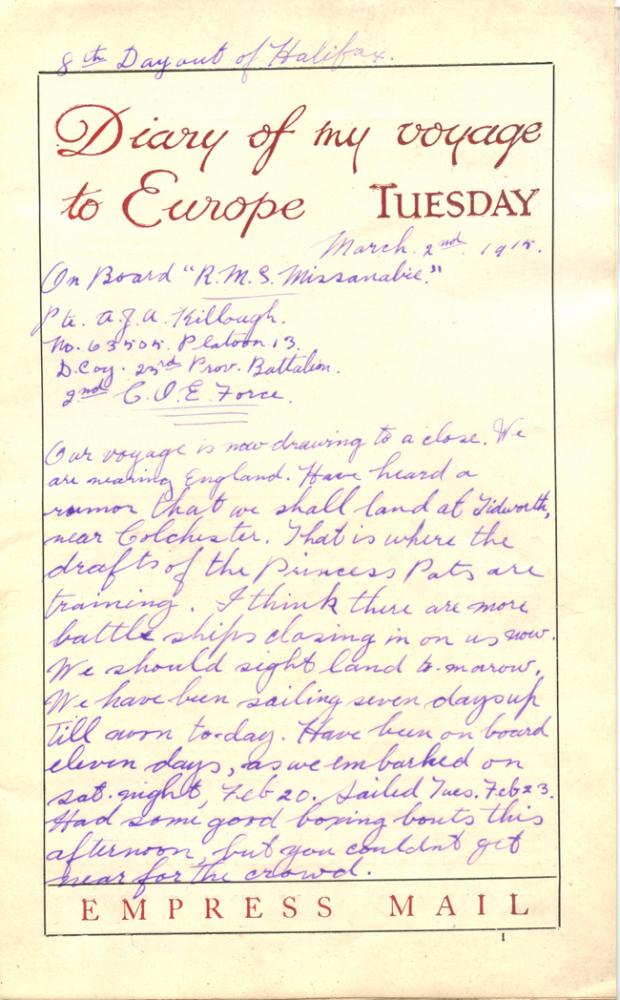 8th Day out of Halifax.
Diary of my voyage
to Europe TUESDAY
March. 2nd. 1915.
On Board "R.M.S. Missanabie."
Pte. A.J.A. Killough.
No. 63505. Platoon 13.
D. Coy. 23rd Prov. Battalion.
2nd C.O.E. Force.
Our voyage is now drawing to a close. We
are nearing England. Have heard a
rumor that we shall land at Tidworth,
near Colchester. That is where the
drafts of the Princess Pats are
training. I think there are more
battle ships closing in on us now.
We should sight land to-marow.
We have been sailing seven days up
till noon to-day. Have been on board
eleven days, as we embarked on
sat. night, Feb 20. Sailed Tues. Feb 23.
Had some good boxing bouts this
afternoon, but you couldnt get
near for the crowd.
EMPRESS MAIL
1